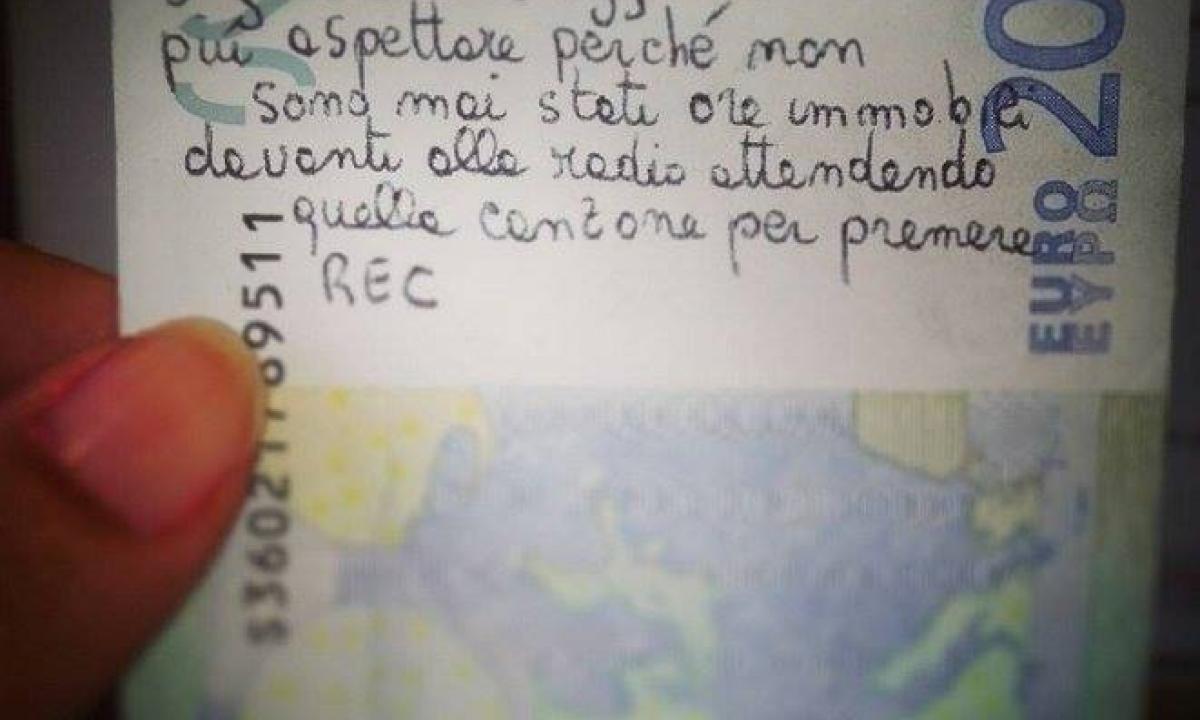 più aspettare perché non
sono mai stati ore immobili
davanti alla radio attendendo
quella canzone per premere
REC
20
EURO
ΕΥΡΩ
9511
S3602